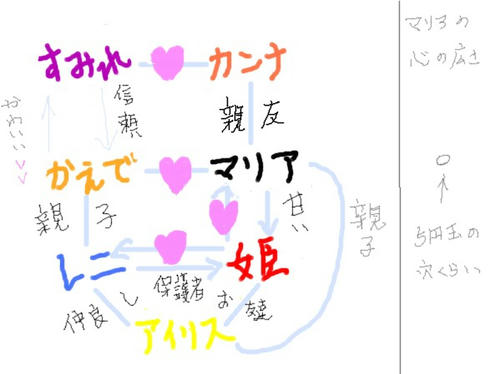 すみれ
カンナ
信頼
親友
かわいい
かえで
マリア
親子
甘い
親子
レニ
保護者
姫
仲良し
お友達
アイリス
マリアの
心の広さ
○
↑
5円玉の
穴くらい